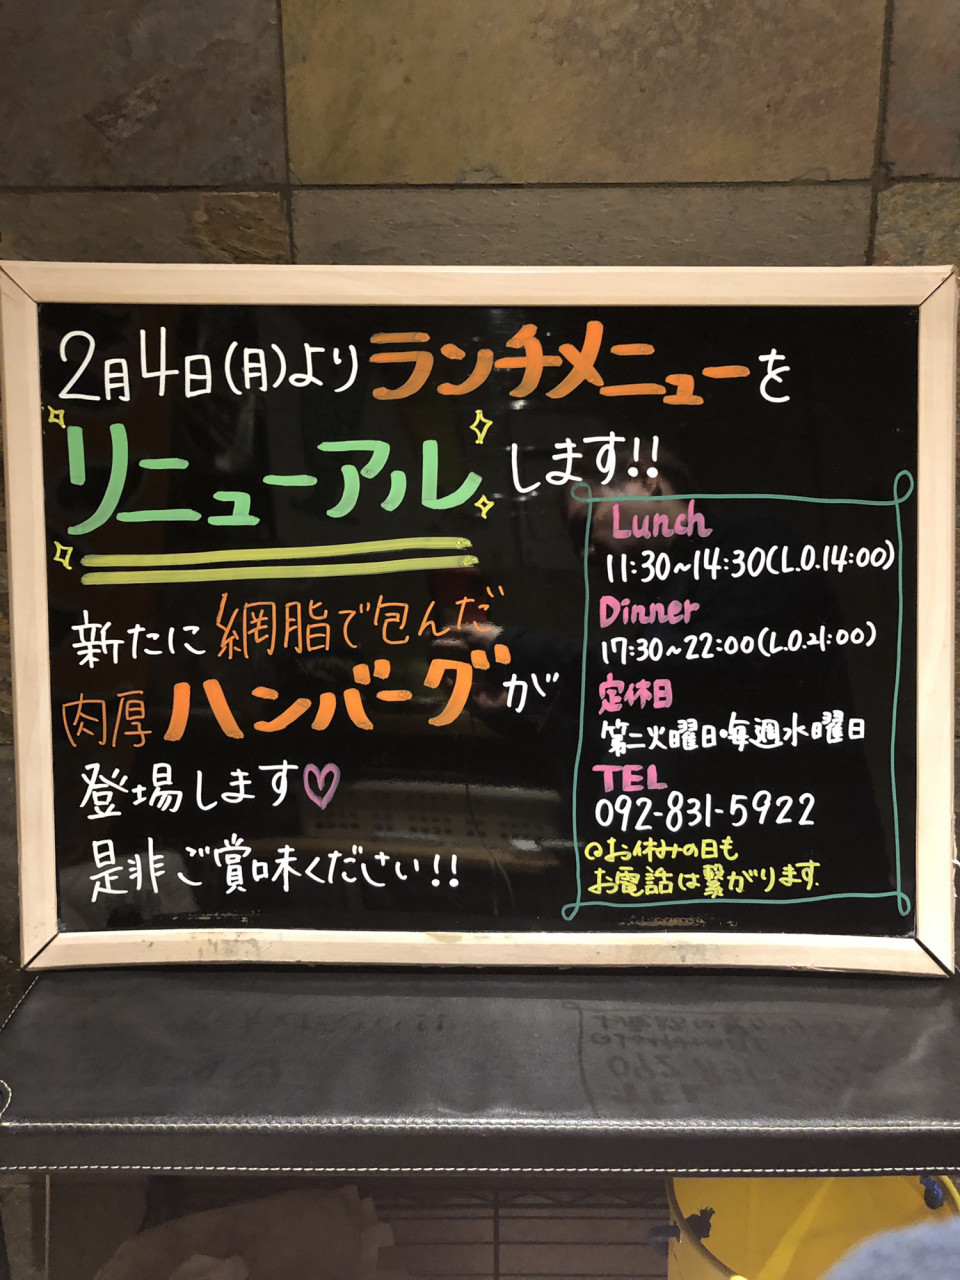 2月4日(月)よりランチメニューを
リニューアルします!!
新たに網脂で包んだ
肉厚ハンバーグが
登場します♡
是非ご賞味ください!!
Lunch
11:30~14:30(L.O.14:00)
Dinner
17:30~22:00(L.O.21:00)
定休日
第二火曜日・毎週水曜日
TEL
092-831-5922
◎お休みの日も
お電話は繋がります.